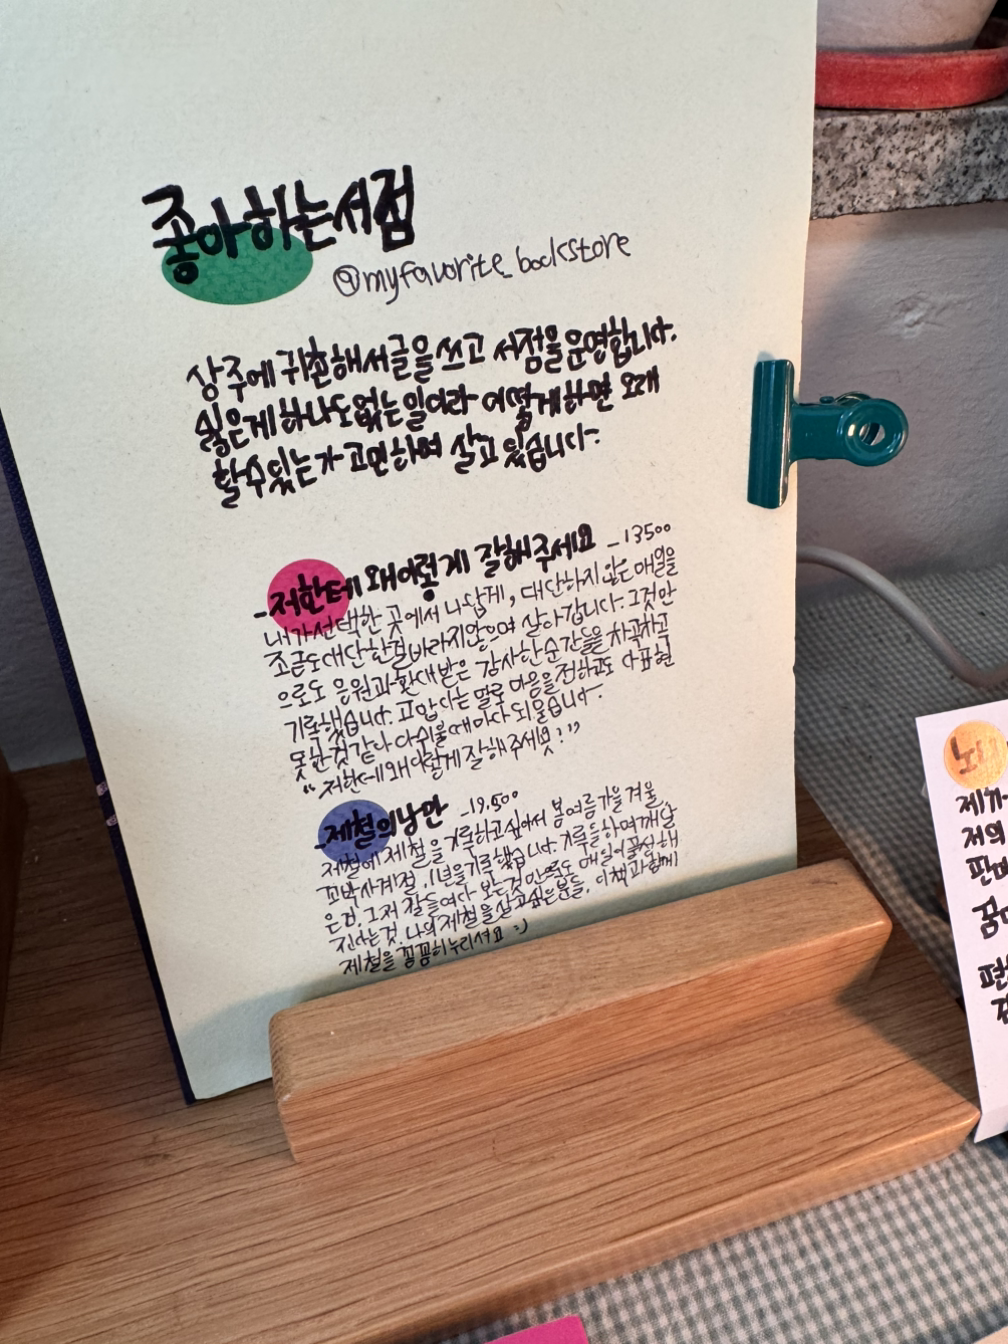 좋아하는서점
@myfavorite_bookstore
상주에 귀촌해서 글을 쓰고 서점을 운영합니다.
싫은게 하나도 없는 일이라 어떻게하면 오래
할 수 있는가 고민하며 살고 있습니다.
- 저한테 왜이렇게 잘해주세요 - 13500
내가 선택한 곳에서 나답게, 대단하지 않은 매일을
조금도 대단한걸 바라지않으며 살아갑니다. 그것만
으로도 응원과 환대받은 감사한 순간들을 차곡차곡
기록했습니다. 고맙다는 말로 마음을 전하고도 다 표현
못한 것 같아 아쉬울때마다 되뇌입니다.
"저한테 왜이렇게 잘해주세요!"
- 제철의낭만 - 19,500
제철에 제철을 기록하고싶어서 봄여름가을겨울,
꼬박사계절, 1년을 기록했습니다. 기록들하며 깨달
은건, 그저 잘 들여다 보는것 만으로도 매일이 풍성해
진다는것. 나의 제철을 살고싶은분들, 이 책과 함께
제철을 꼼꼼히 누리셔요 :)
제가
저의
판매